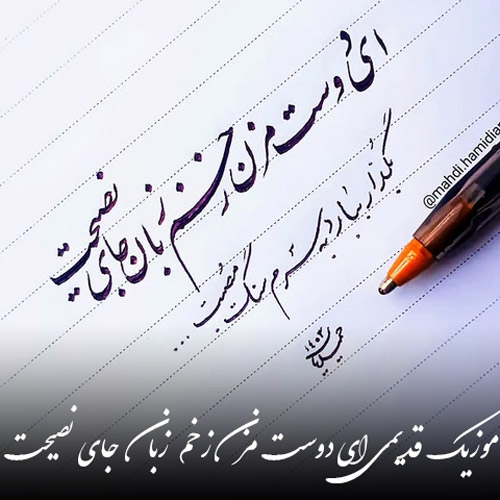 ای دوست مزن زخم زبان جای نصیحت
بگذار ببارد به سرم سنگ مصیبت ...
@mahdi.hamidian
موزیک قدیمی ای دوست مزن زخم زبان جای نصیحت